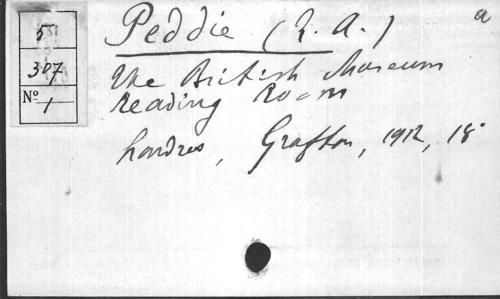 5
307
Nº 1
Peddie (R. A.)
a
The British Museum
Reading Room
Londres, Grafton, 1912, 18°